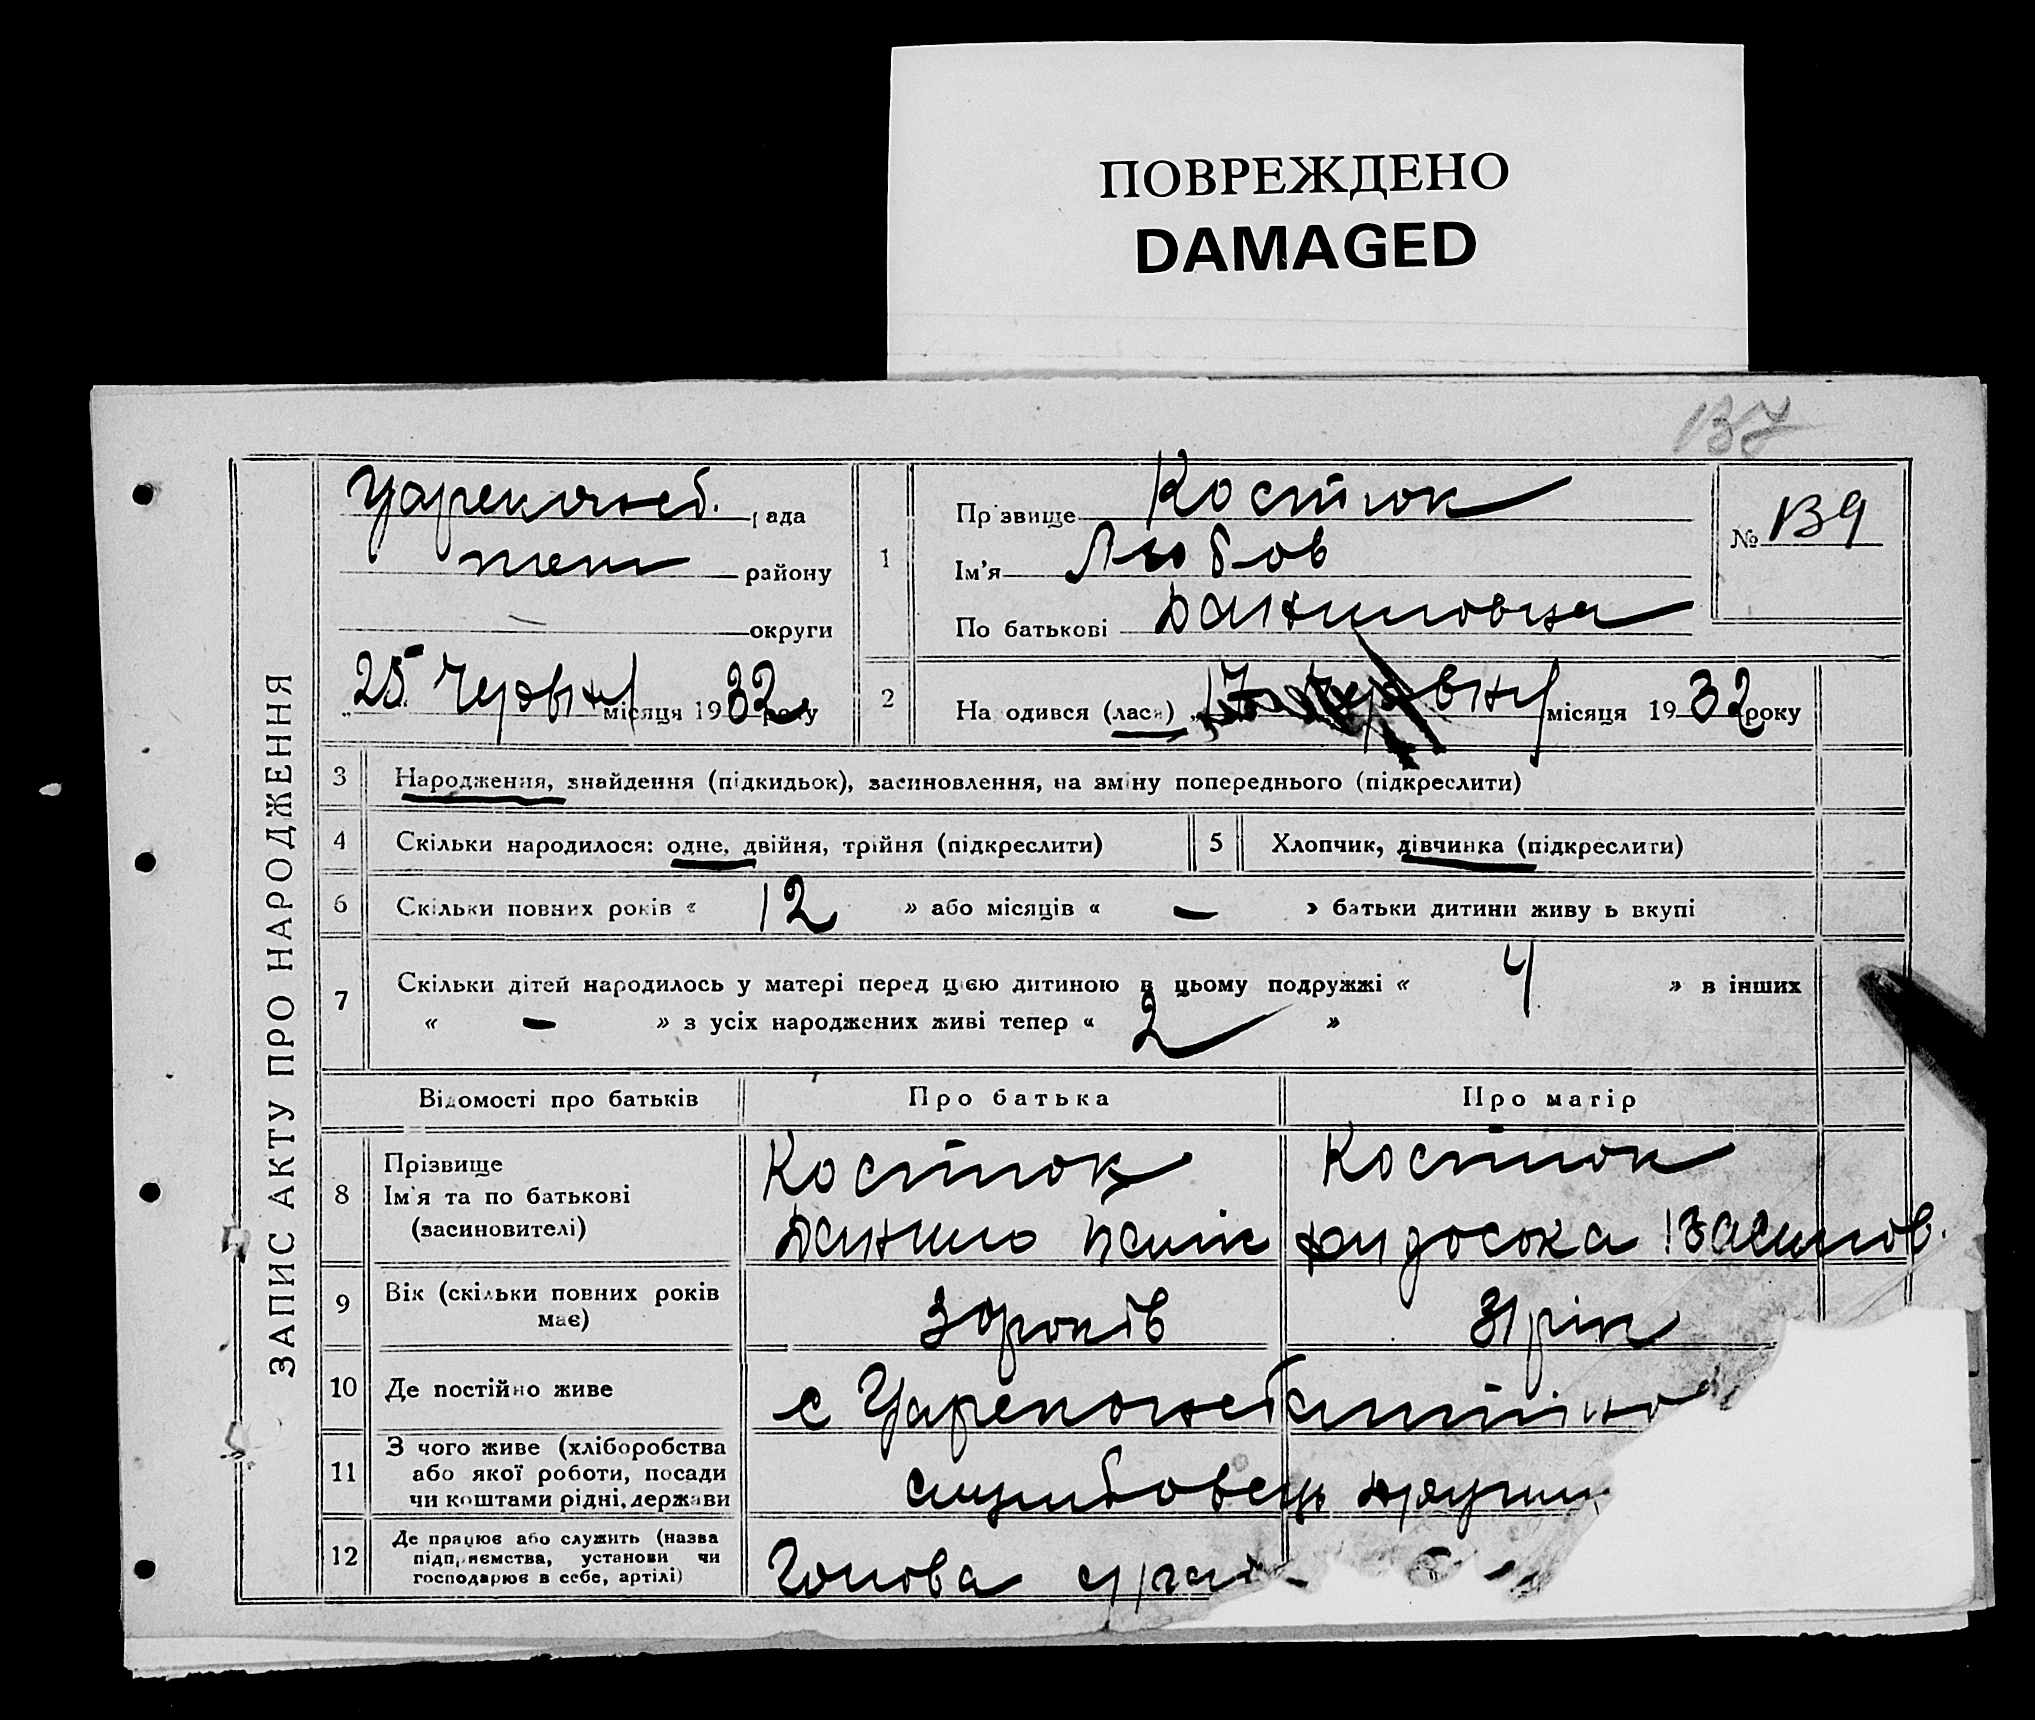 ПОВРЕЖДЕНО
DAMAGED
137
ЗАПИС АКТУ ПРО НАРОДЖЕННЯ
Царекличеб. рада
району
округи
25 Червня місяця 1932 року
1
Прізвище Костюк
Ім'я Любов
По батькові Даниловна
№ 139
2 На одився (лася) 17 Червня місяця 1932 року
3 Народження, знайдення (підкидьок), засиновлення, на зміну попереднього (підкреслити)
4 Скільки народилося: одне, двійня, трійня (підкреслити)
5 Хлопчик, дівчинка (підкреслити)
6 Скільки повних років « 12 » або місяців « — » батьки дитини живу ь вкупі
7 Скільки дітей народилось у матері перед цією дитиною в цьому подружжі « 4 » в інших
« — » з усіх народжених живі тепер « 2 »
Відомості про батьків Про батька Про матір
8 Прізвище
Ім'я та по батькові
(засиновителі)
Костюк
Данило
Костюк
9 Вік (скільки повних років
має)
30 років
31 рік
10 Де постійно живе
с
11 З чого живе (хліборобства
або якої роботи, посади
чи коштами рідні, держави
службовець
12 Де працює або служить (назва
підприємства, установи чи
господарює в себе, артілі)
Голова